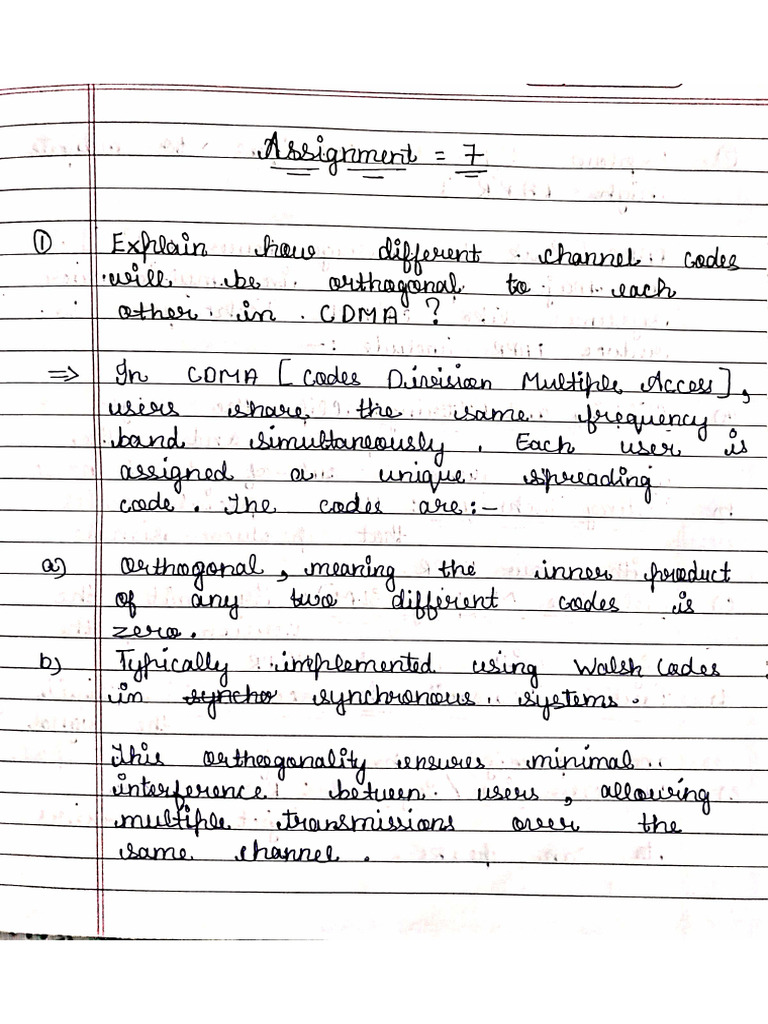 Assignment = 7
① Explain how different channel codes
will be orthogonal to each
other in CDMA ?
⇒ In CDMA [Codes Division Multiple Access],
users share the same frequency
band simultaneously. Each user is
assigned a unique spreading
code. The codes are:-
a) orthogonal, meaning the inner product
of any two different codes is
zero.
b) Typically implemented using Walsh Codes
in synchro synchronous systems.
This orthogonality ensures minimal
interference between users, allowing
multiple transmissions over the
same channel.